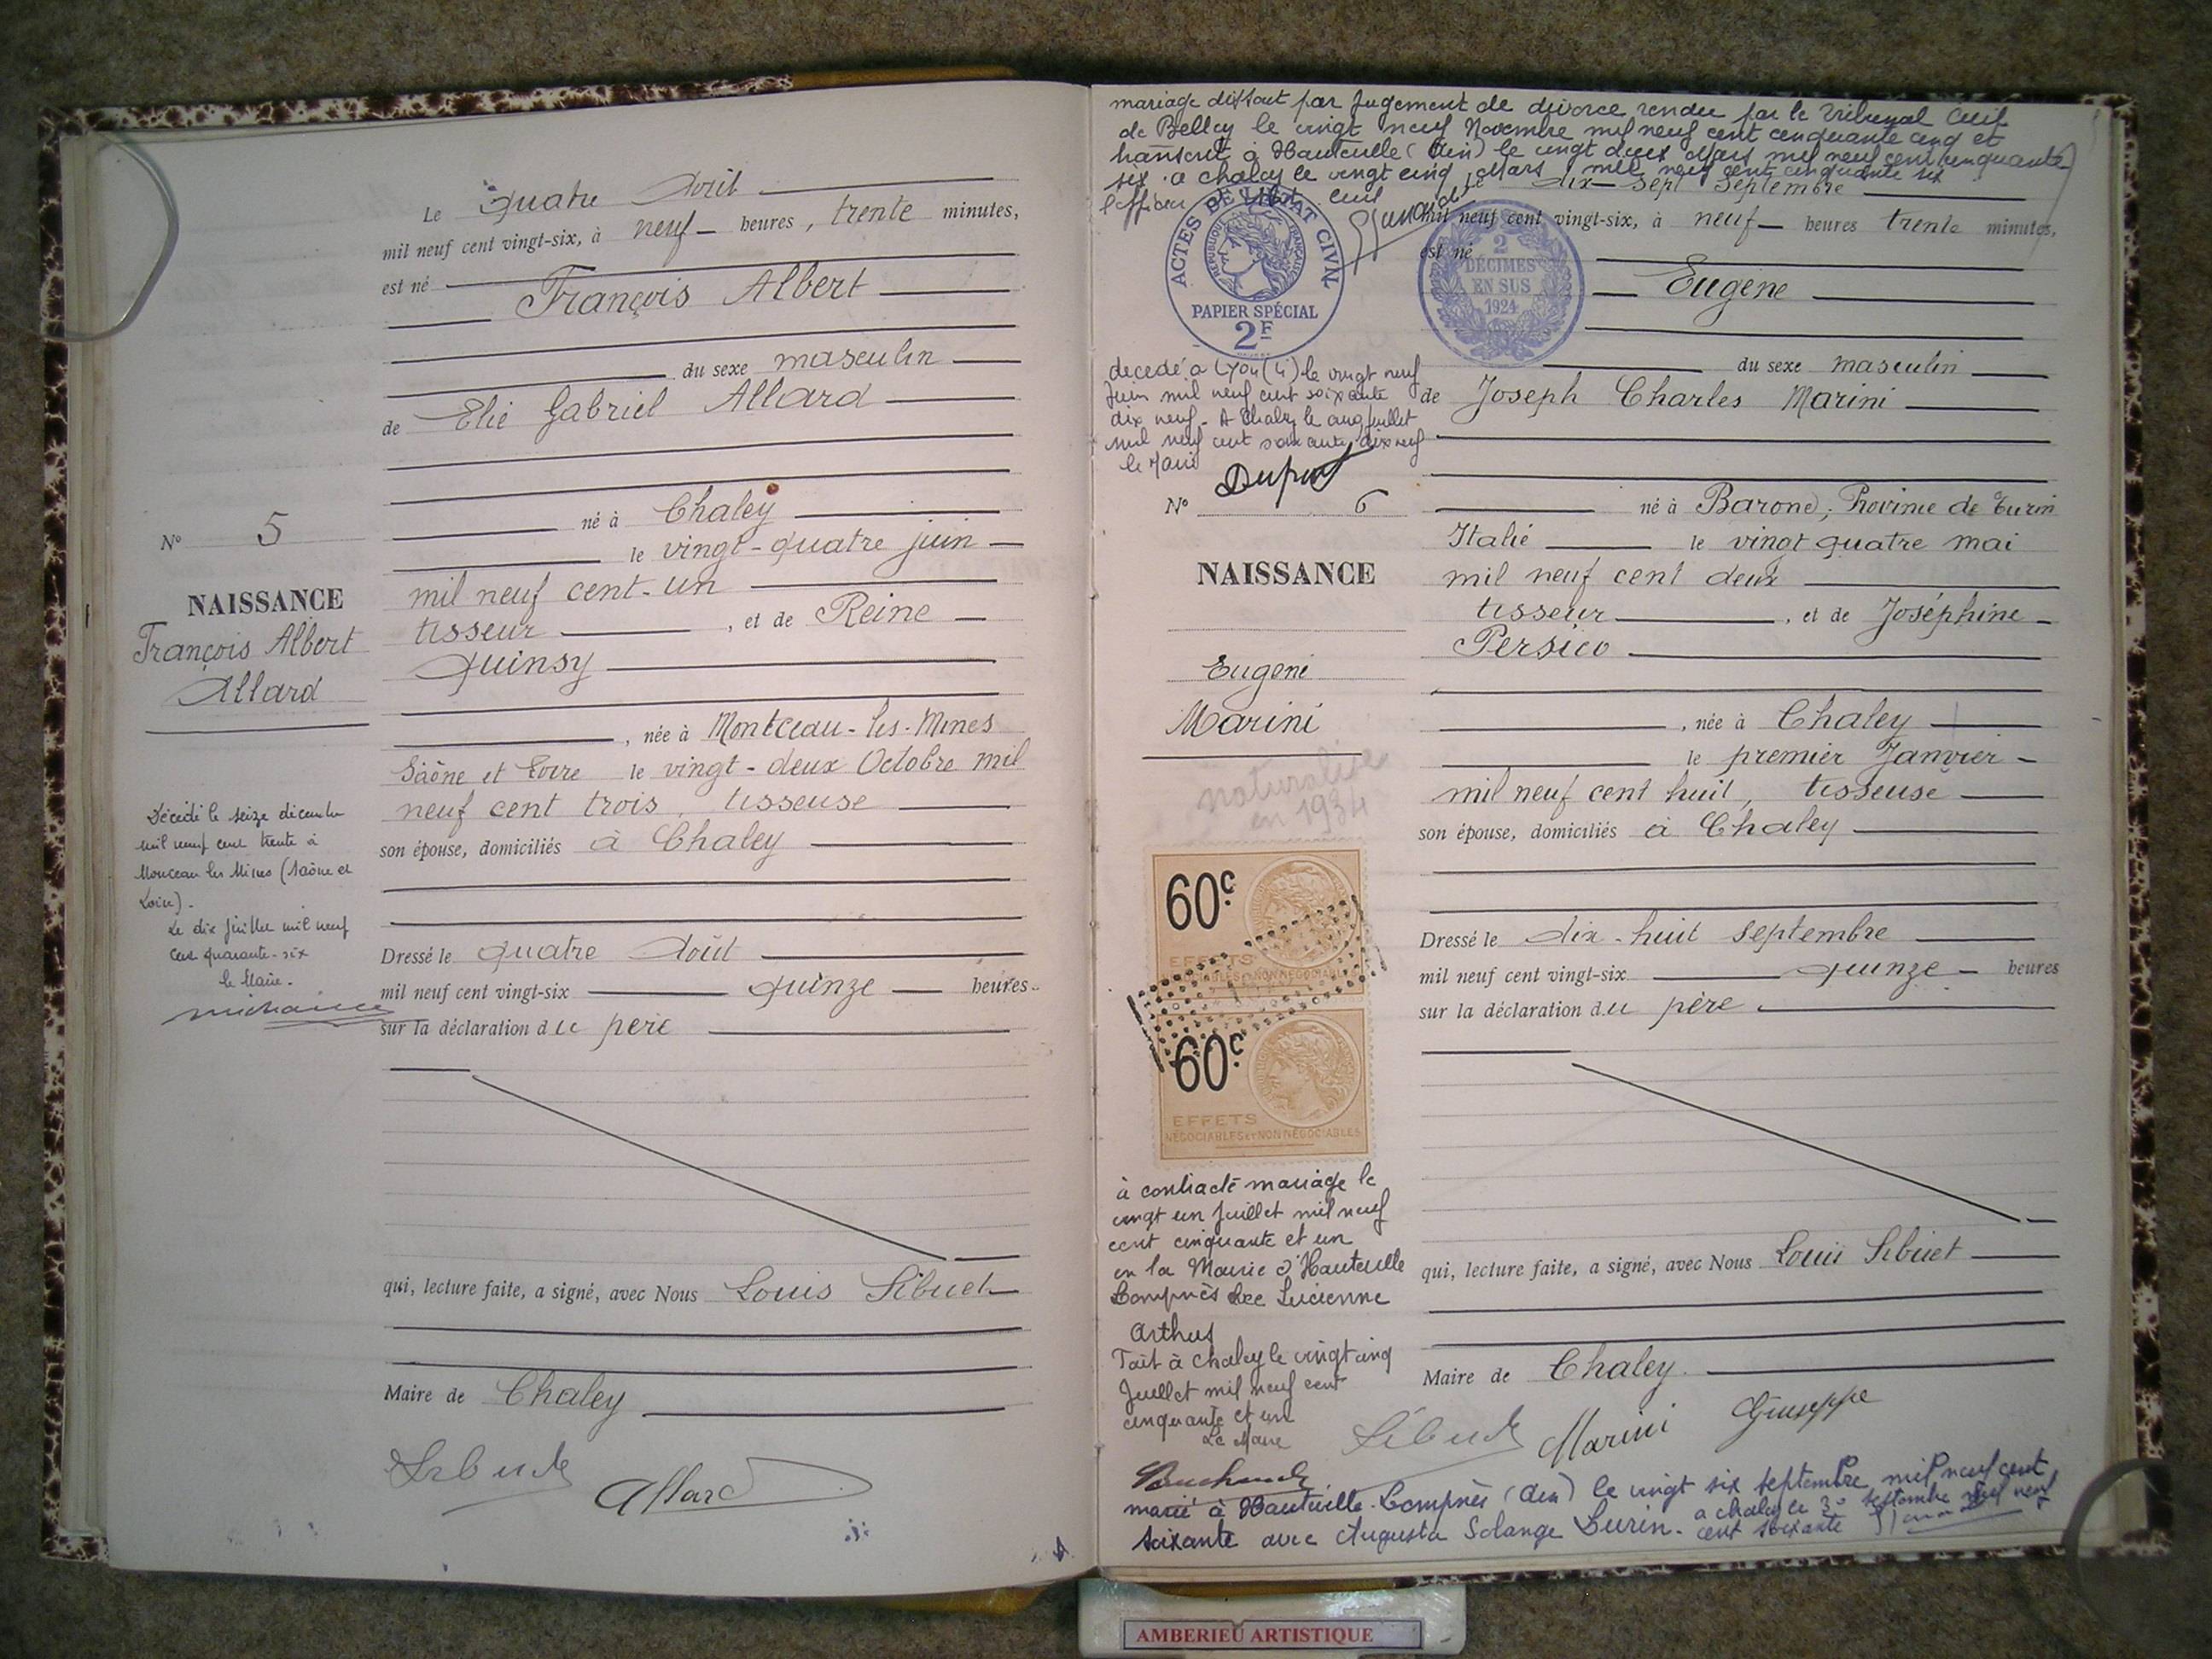 Le quatre Août
mil neuf cent vingt-six, à neuf heures, trente minutes,
est né
François Albert
du sexe masculin
de Elie Gabriel Allard
né à Chaley
le vingt-quatre juin
mil neuf cent-un
tisseur, et de Reine
Quinsy
, née à Montceau-les-Mines
Saône et Loire le vingt-deux Octobre mil
neuf cent trois, tisseuse
son épouse, domiciliés à Chaley
Dressé le quatre Août
mil neuf cent vingt-six quinze heures
sur la déclaration du père
qui, lecture faite, a signé, avec Nous Louis Sibuet
Maire de Chaley
Sibuet Allard
N° 5
NAISSANCE
François Albert
Allard
Décédé le seize décembre
mil neuf cent trente à
Monceau les Mines (Saône et
Loire).
Le dix juillet mil neuf
cent quarante-six
le Maire.
mariage dissout par Jugement de divorce rendu par le Tribunal Civil
de Belley le vingt neuf Novembre mil neuf cent cinquante cinq et
transcrit à Hauteville (Ain) le vingt deux Mars mil neuf cent cinquante
six. a chaley le vingt cinq Mars mil neuf cent cinquante six
l'officier civil
ACTES DE L'ETAT CIVIL
REPUBLIQUE FRANÇAISE
PAPIER SPÉCIAL
2F
2
DÉCIMES
EN SUS
1924
Le dix-sept Septembre
mil neuf cent vingt-six, à neuf heures trente minutes,
est né
Eugène
du sexe masculin
de Joseph Charles Marini
né à Barone, Province de Turin
Italie le vingt quatre mai
mil neuf cent deux
tisseur, et de Joséphine
Persico
, née à Chaley
le premier Janvier
mil neuf cent huit, tisseuse
son épouse, domiciliés à Chaley
Dressé le dix-huit septembre
mil neuf cent vingt-six quinze heures
sur la déclaration du père
qui, lecture faite, a signé, avec Nous Louis Sibuet
Maire de Chaley
Sibuet Marini Giuseppe
decedé a Lyon (4) le vingt neuf
Juin mil neuf cent soixante
dix neuf - A Chaley le cinq juillet
mil neuf cent soixante dix neuf
le Maire
N° 6
NAISSANCE
Eugène
Marini
naturalisé
en 1934
60c
EFFETS
NÉGOCIABLES ET NON NÉGOCIABLES
60c
EFFETS
NÉGOCIABLES ET NON NÉGOCIABLES
à contracté mariage le
vingt un Juillet mil neuf
cent cinquante et un
en la Mairie d'Hauteville
Lompnès avec Lucienne
Arthus
Fait à Chaley le vingt cinq
Juillet mil neuf cent
cinquante et un
Le Maire
marié à Hauteville-Lompnès (Ain) le vingt six septembre mil neuf cent
soixante avec Augusta Solange Burin. a chaley le 30 septembre mil neuf
cent soixante
AMBERIEU ARTISTIQUE